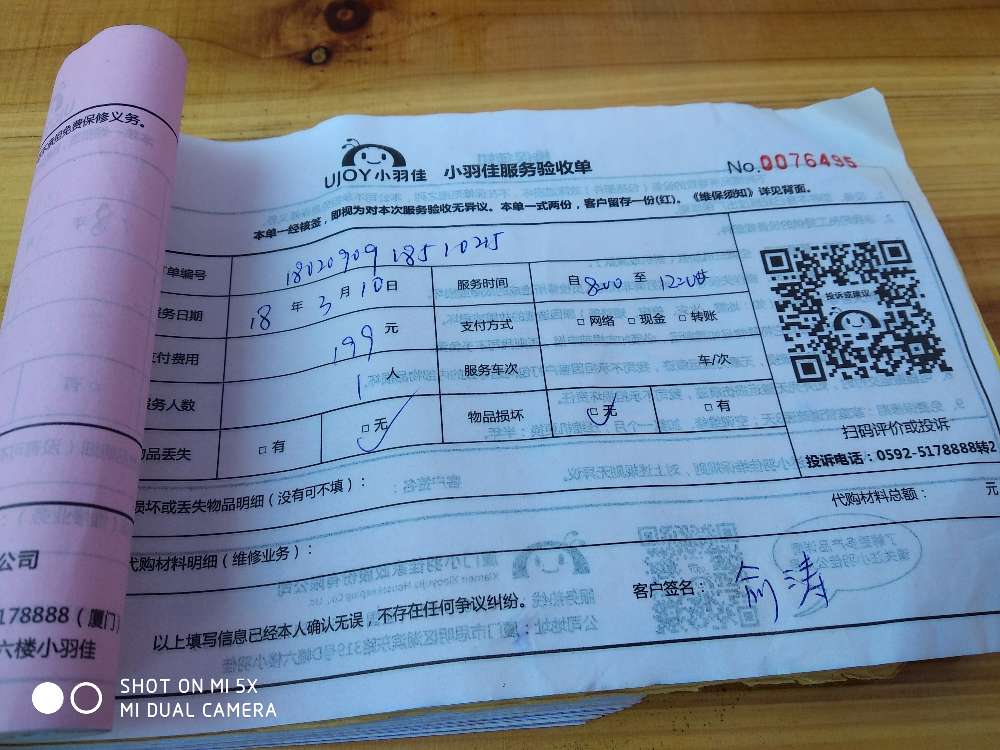 免费保修义务。
UJOY小羽佳 小羽佳服务验收单
No.0076495
本单一经核签，即视为对本次服务验收无异议。本单一式两份，客户留存一份(红)。《维保须知》详见背面。
单编号
服务时间 自8:00至12:00
务日期 18年3月10日
付费用 199元
支付方式 □网络 □现金 □转账
投诉或建议
务人数 1人
服务车次 车/次
品丢失 □有 □无
物品损坏 □无 □有
扫码评价或投诉
投诉电话：0592-5178888转2
损坏或丢失物品明细（没有可不填）：
代购材料总额： 元
代购材料明细（维修业务）：
客户签名：俞涛
以上填写信息已经本人确认无误，不存在任何争议纠纷。
公司
178888（厦门）
六楼小羽佳
SHOT ON MI 5X
MI DUAL CAMERA